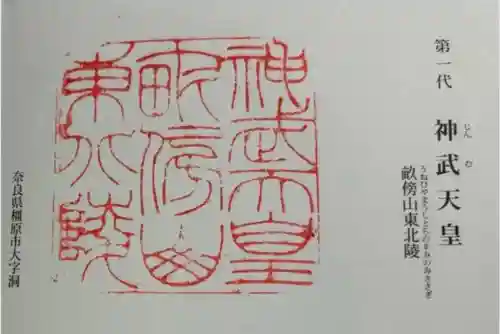 第一代
神武天皇
じんむ
畝傍山東北陵
うねびやまのうしとらのすみのみささぎ
神武天皇
畝傍山
東北陵
奈良県橿原市大字洞